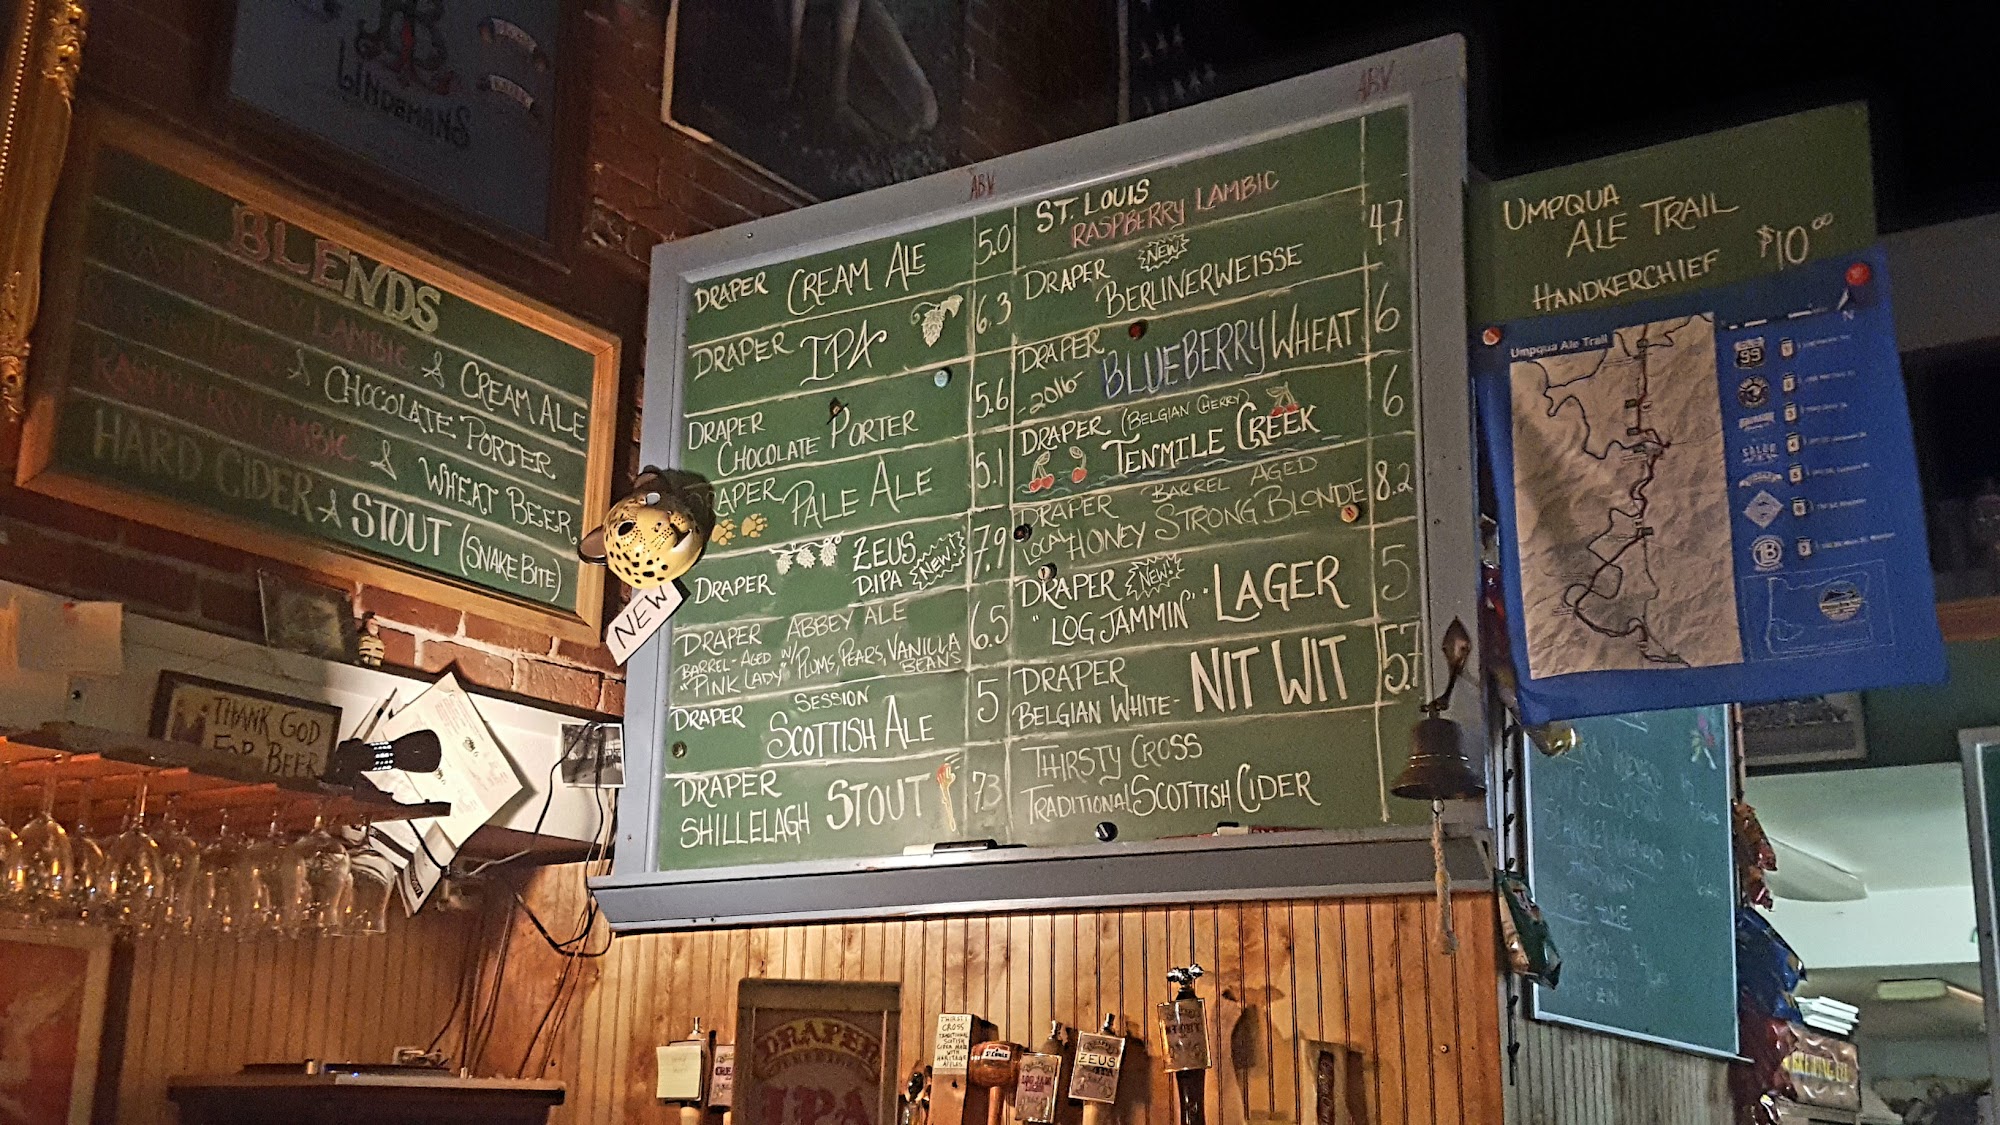 BLENDS
RASPBERRY LAMBIC & CREAM ALE
& CHOCOLATE PORTER
RASPBERRY LAMBIC & WHEAT BEER
HARD CIDER & STOUT (SNAKE BITE)
THANK GOD
FOR BEER
NEW
ABV
DRAPER CREAM ALE 5.0
DRAPER IPA 6.3
DRAPER
CHOCOLATE PORTER 5.6
DRAPER PALE ALE 5.1
DRAPER ZEUS
DIPA NEW! 7.9
DRAPER ABBEY ALE 6.5
BARREL-AGED W/ PLUMS, PEARS, VANILLA
"PINK LADY" BEANS
DRAPER SESSION
SCOTTISH ALE 5
DRAPER
SHILLELAGH STOUT 7.3
ABV
ST. LOUIS
RASPBERRY LAMBIC
DRAPER NEW!
BERLINERWEISSE 4.7
DRAPER
-2016- BLUEBERRY WHEAT 6
DRAPER (BELGIAN CHERRY)
TENMILE CREEK 6
DRAPER BARREL AGED
LOCAL HONEY STRONG BLONDE 8.2
DRAPER NEW!
"LOG JAMMIN'" LAGER 5
DRAPER
BELGIAN WHITE- NIT WIT 5.7
THIRSTY CROSS
TRADITIONAL SCOTTISH CIDER
UMPQUA
ALE TRAIL
HANDKERCHIEF $10.00
Umpqua Ale Trail
99
N
DRAPER
IPA
THIRSTY
CROSS
TRADITIONAL
SCOTISH
CIDER MADE
WITH
HERITAGE
APPLES
St. Louis
ZEUS
BREWING CO